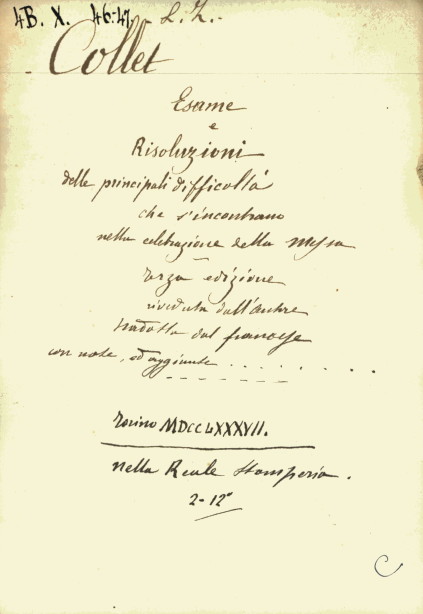 4B. X. 46-47. - L. Z. -
Collet
Esame
e
Risoluzioni
delle principali difficoltà
che s'incontrano
nella celebrazione della Messa
Terza edizione
riveduta dall'Autore
tradotta dal francese
con note, ed aggiunte . . . . . . . .
Torino MDCCLXXXVII.
nella Reale Stamperia.
2-12°
C